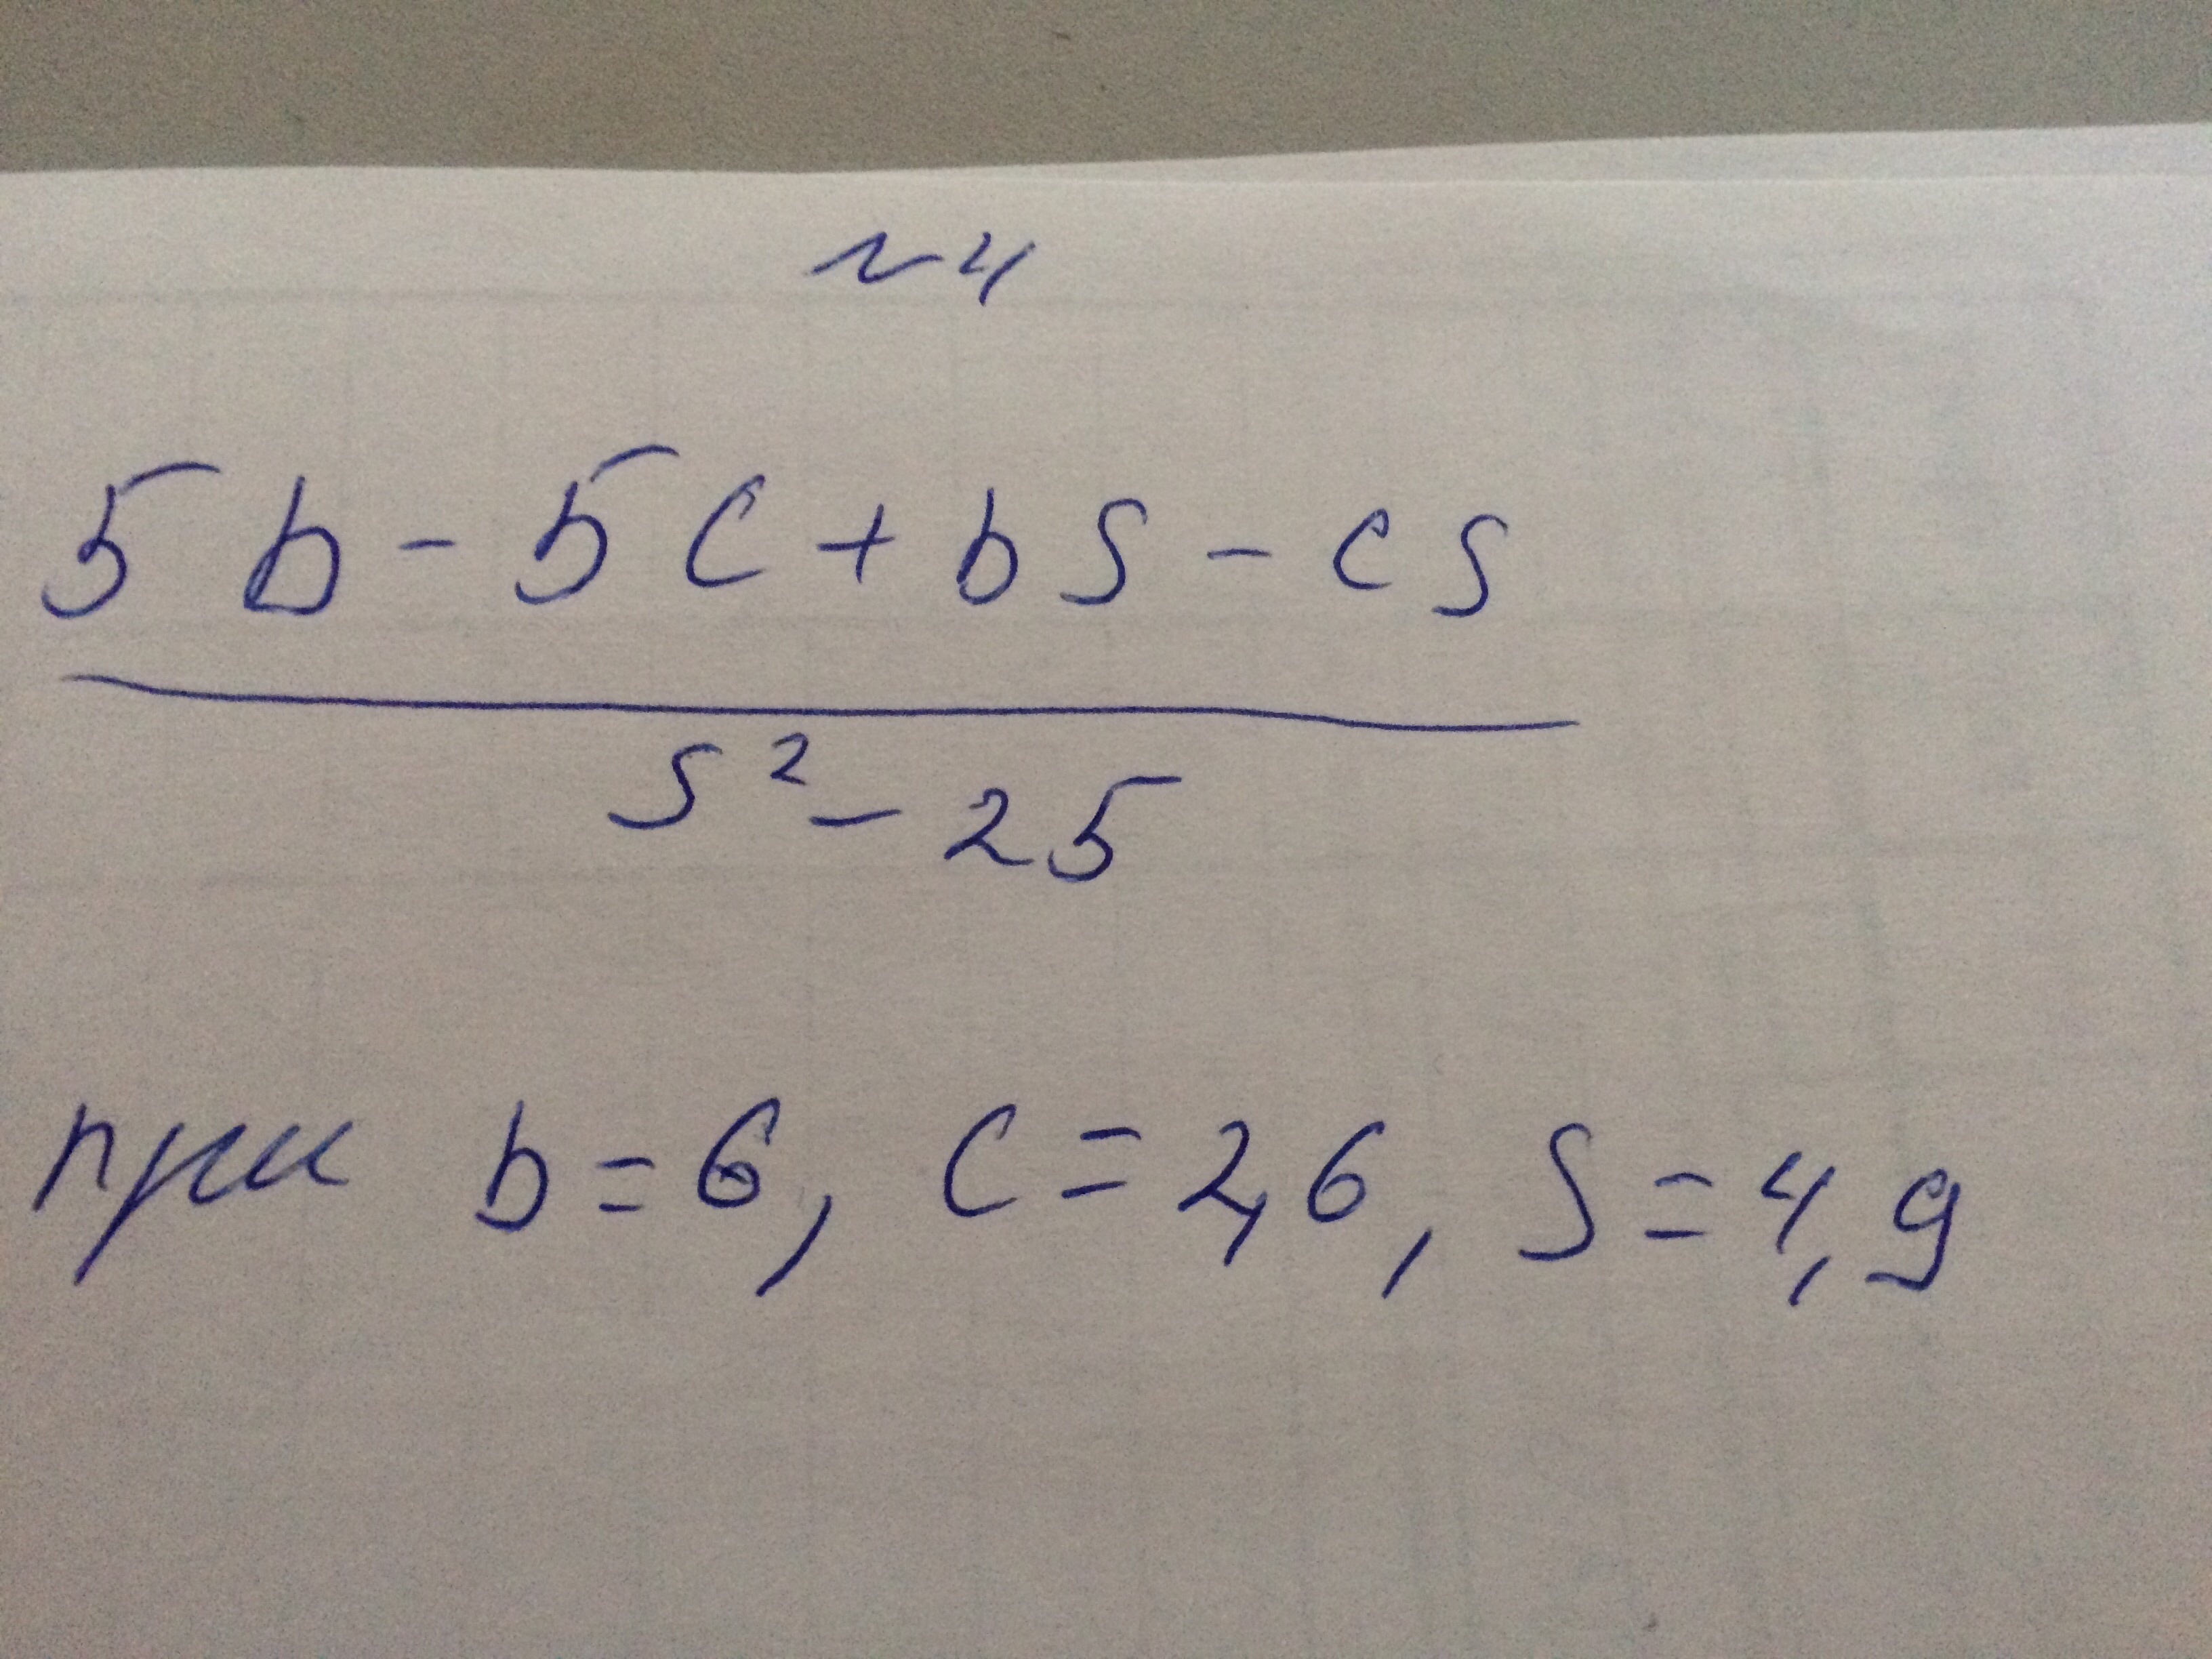 №4
5b - 5c + bs - cs
s² - 25
при b = 6, c = 2,6, s = 4,9